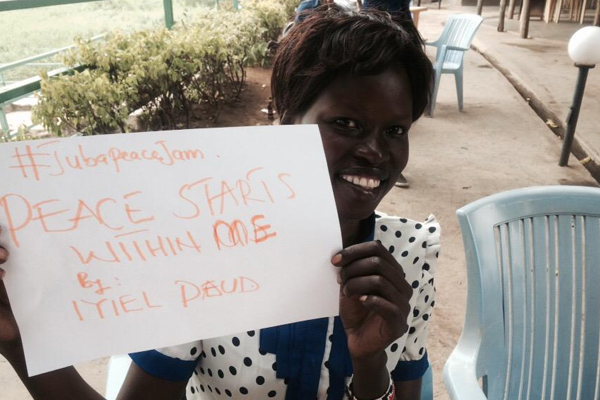 #JubapeaceJam.
PEACE STARTS
WITHIN ME
By:
ITIEL DAUD